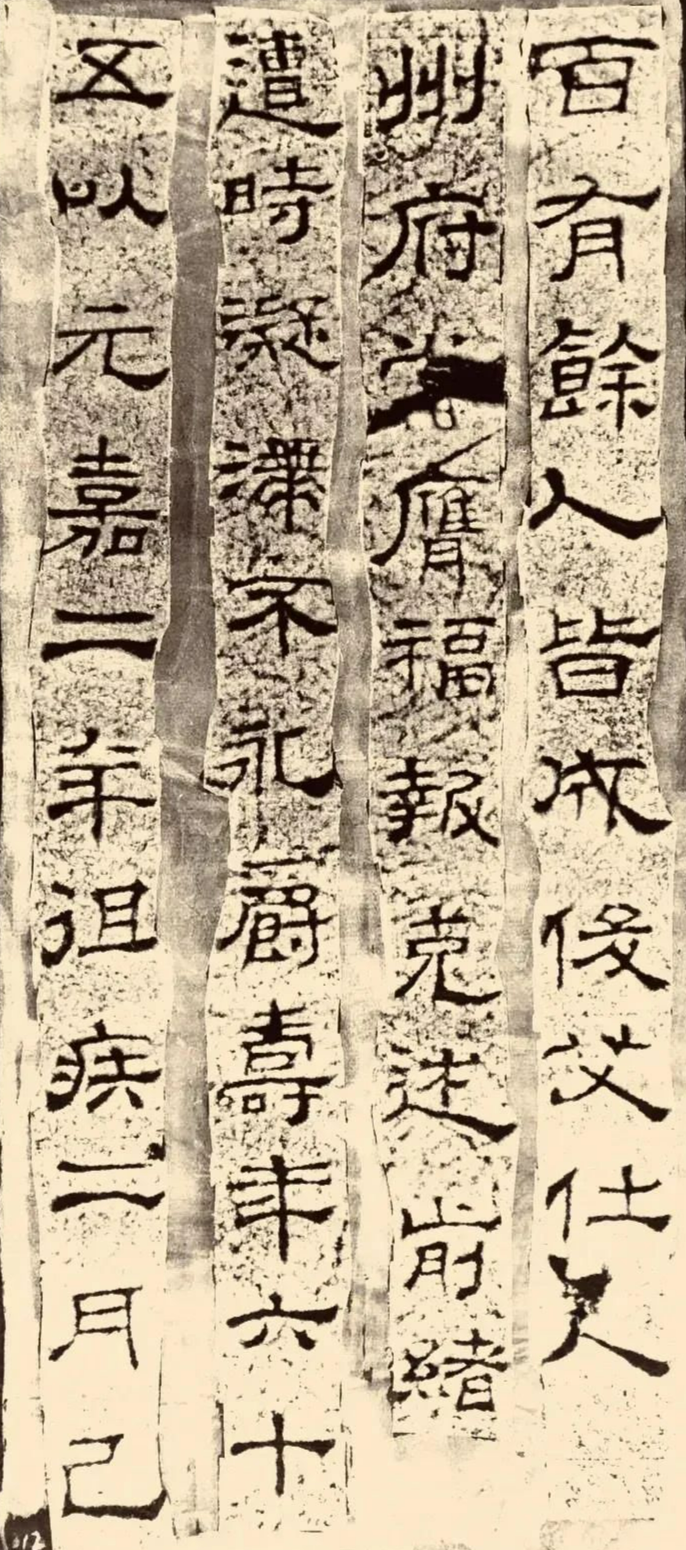 百有餘人皆成俊艾仕入
州府當膺福報克述前緒
遭時凝滯不永爵壽年六十
五以元嘉二年徂疾二月己
012